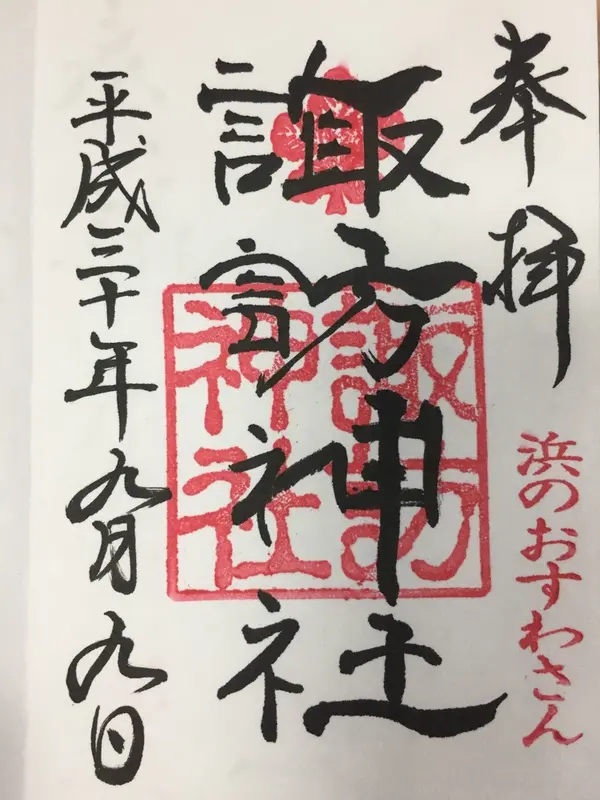 奉拝
浜のおすわさん
諏訪神社
諏訪
神社
平成三十年九月九日